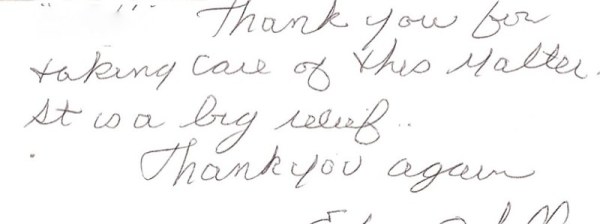 Thank you for
taking care of this matter.
It is a big relief..
Thank you again